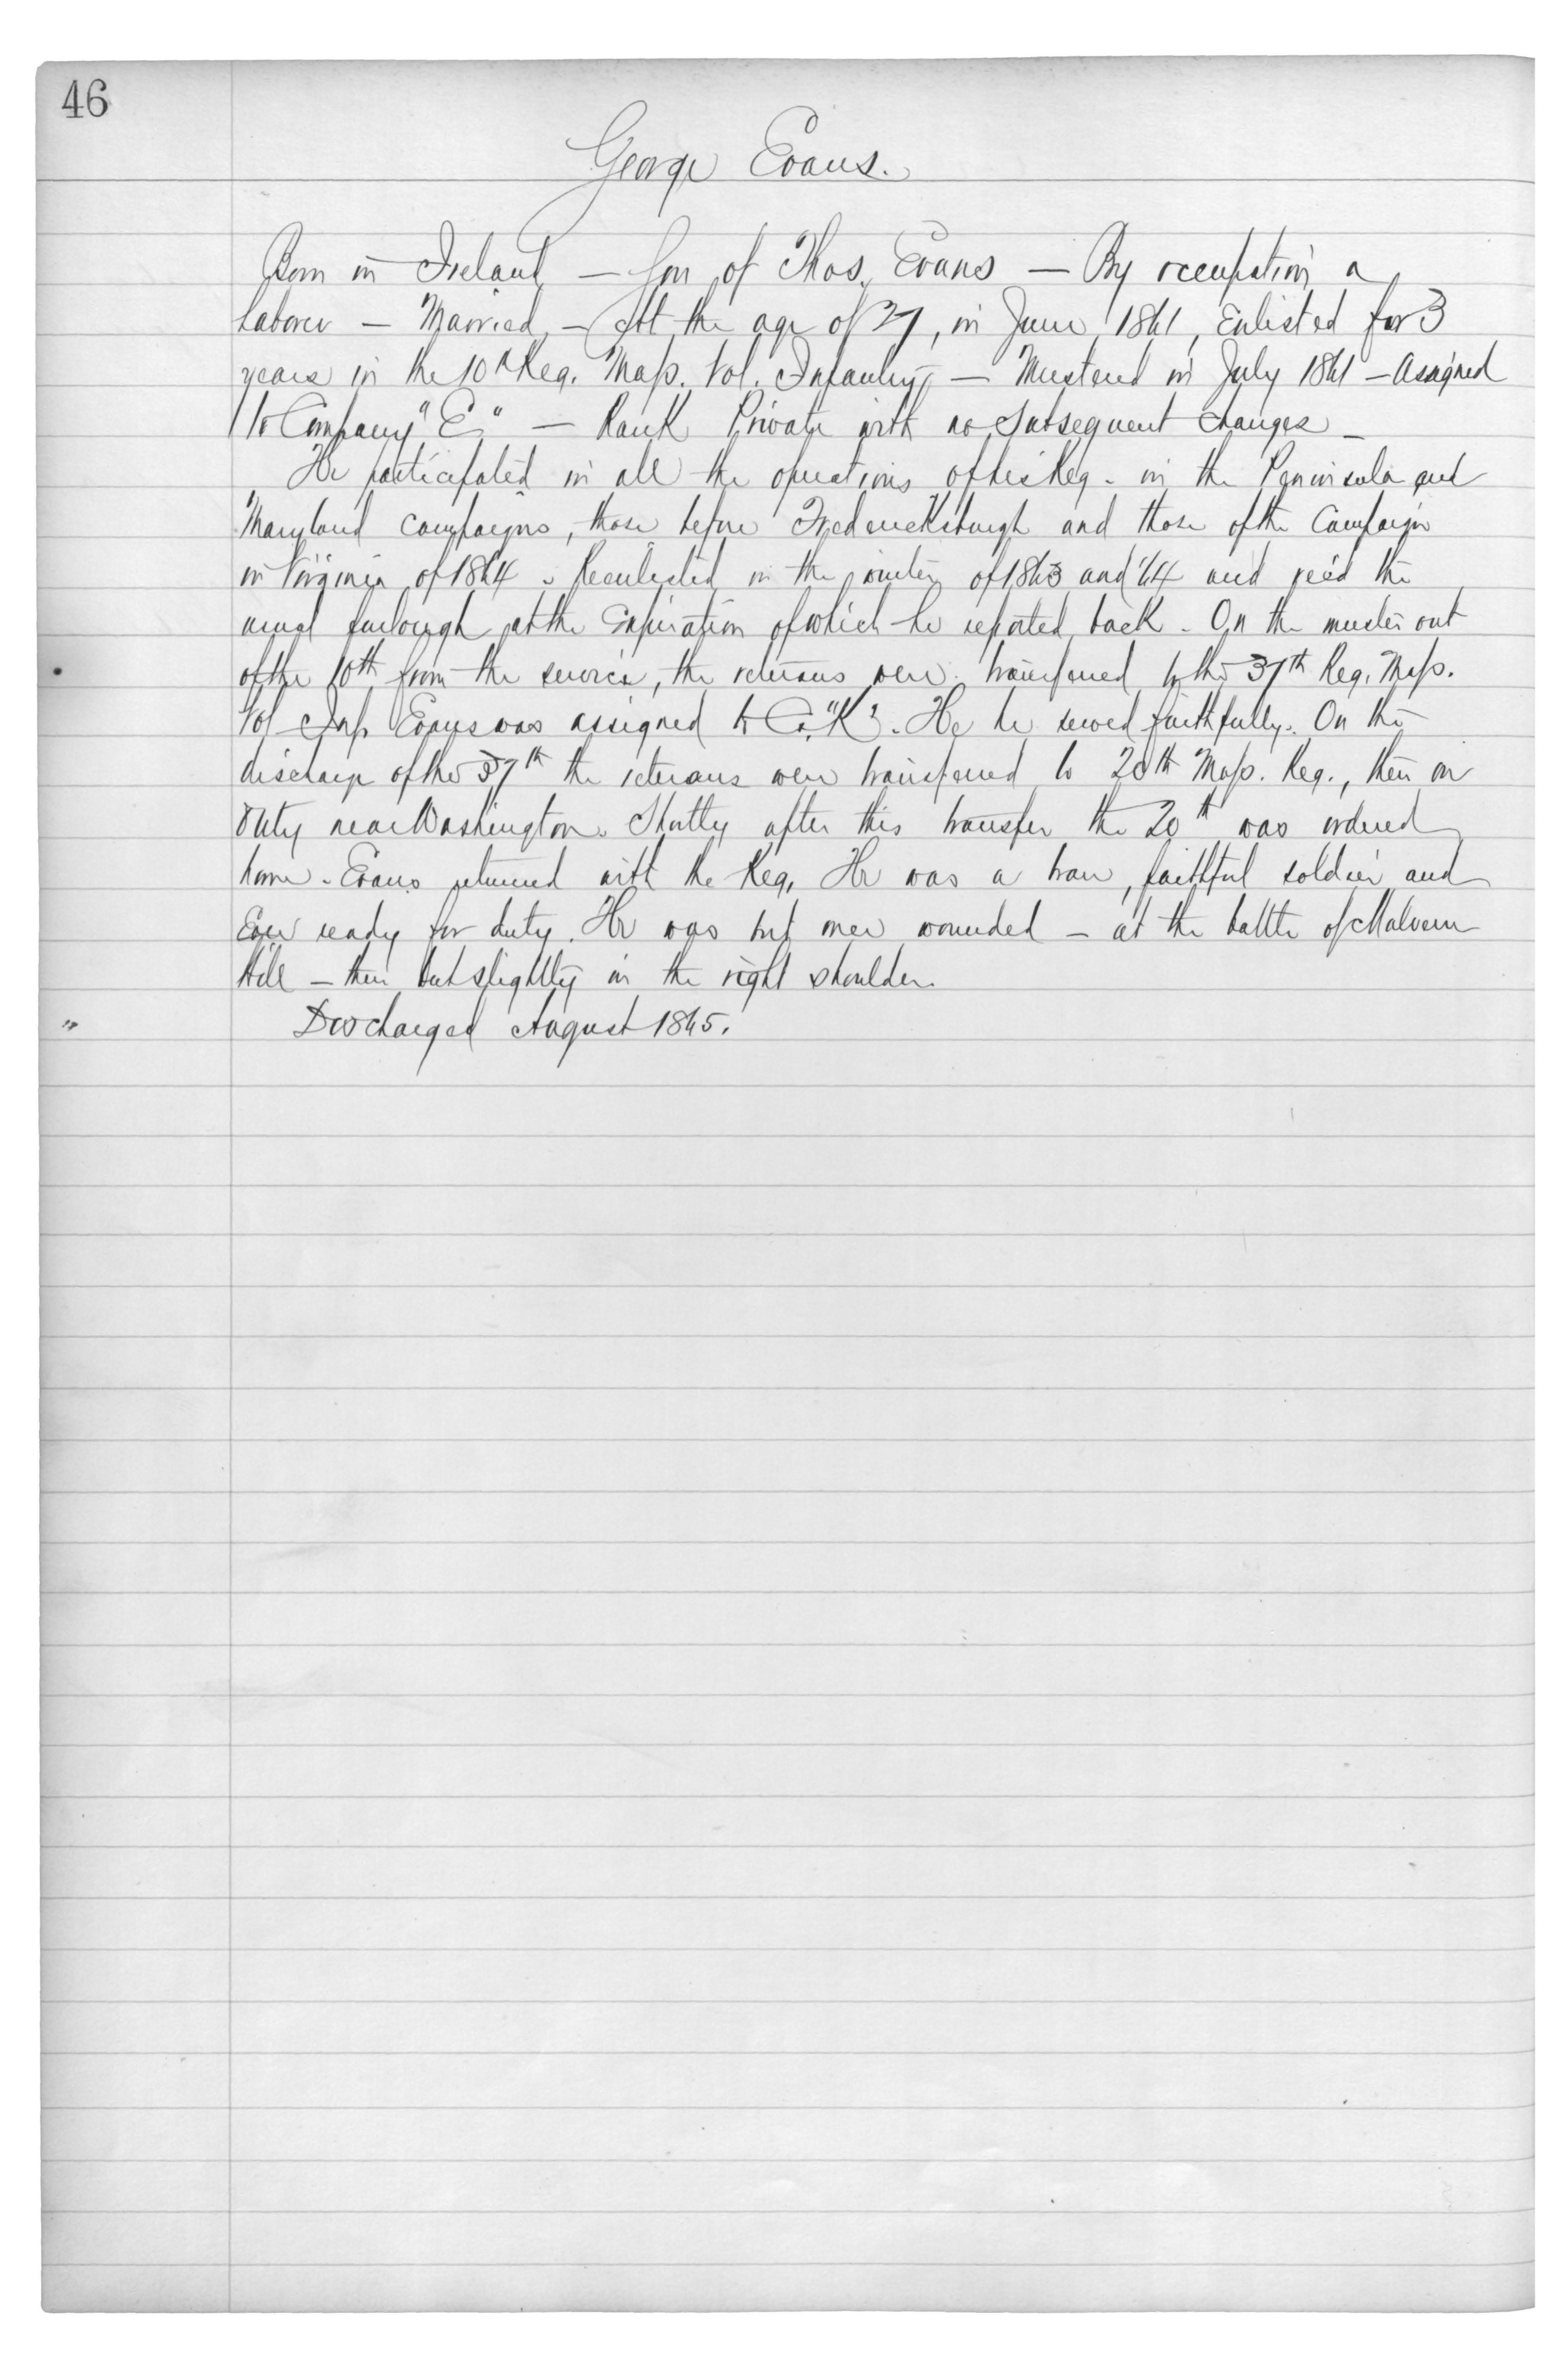 46
George Evans.
Born in Ireland — Son of Thos. Evans — By occupation a
laborer — Married — At the age of 27, in June 1861, Enlisted for 3
years in the 10th Reg. Mass. Vol. Infantry — Mustered in July 1861 — Assigned
to Company "E" — Rank Private with no subsequent changes —
He participated in all the operations of his Reg. in the Peninsula and
Maryland campaigns, those before Fredericksburgh and those of the Campaign
in Virginia of 1864. Reenlisted in the winter of 1863 and '64 and rec'd the
usual furlough at the Expiration of which he reported back. On the muster out
of the 10th from the service, the veterans were transferred to the 37th Reg. Mass.
Vol Inf. Evans was assigned to Co. "K". He served faithfully. On the
discharge of the 37th the veterans were transferred to 20th Mass. Reg., then on
duty near Washington. Shortly after this transfer the 20th was ordered
home. Evans returned with the Reg. He was a brave, faithful soldier and
Ever ready for duty. He was but once wounded — at the battle of Malvern
Hill — then but slightly in the right shoulder.
" Discharged August 1865.